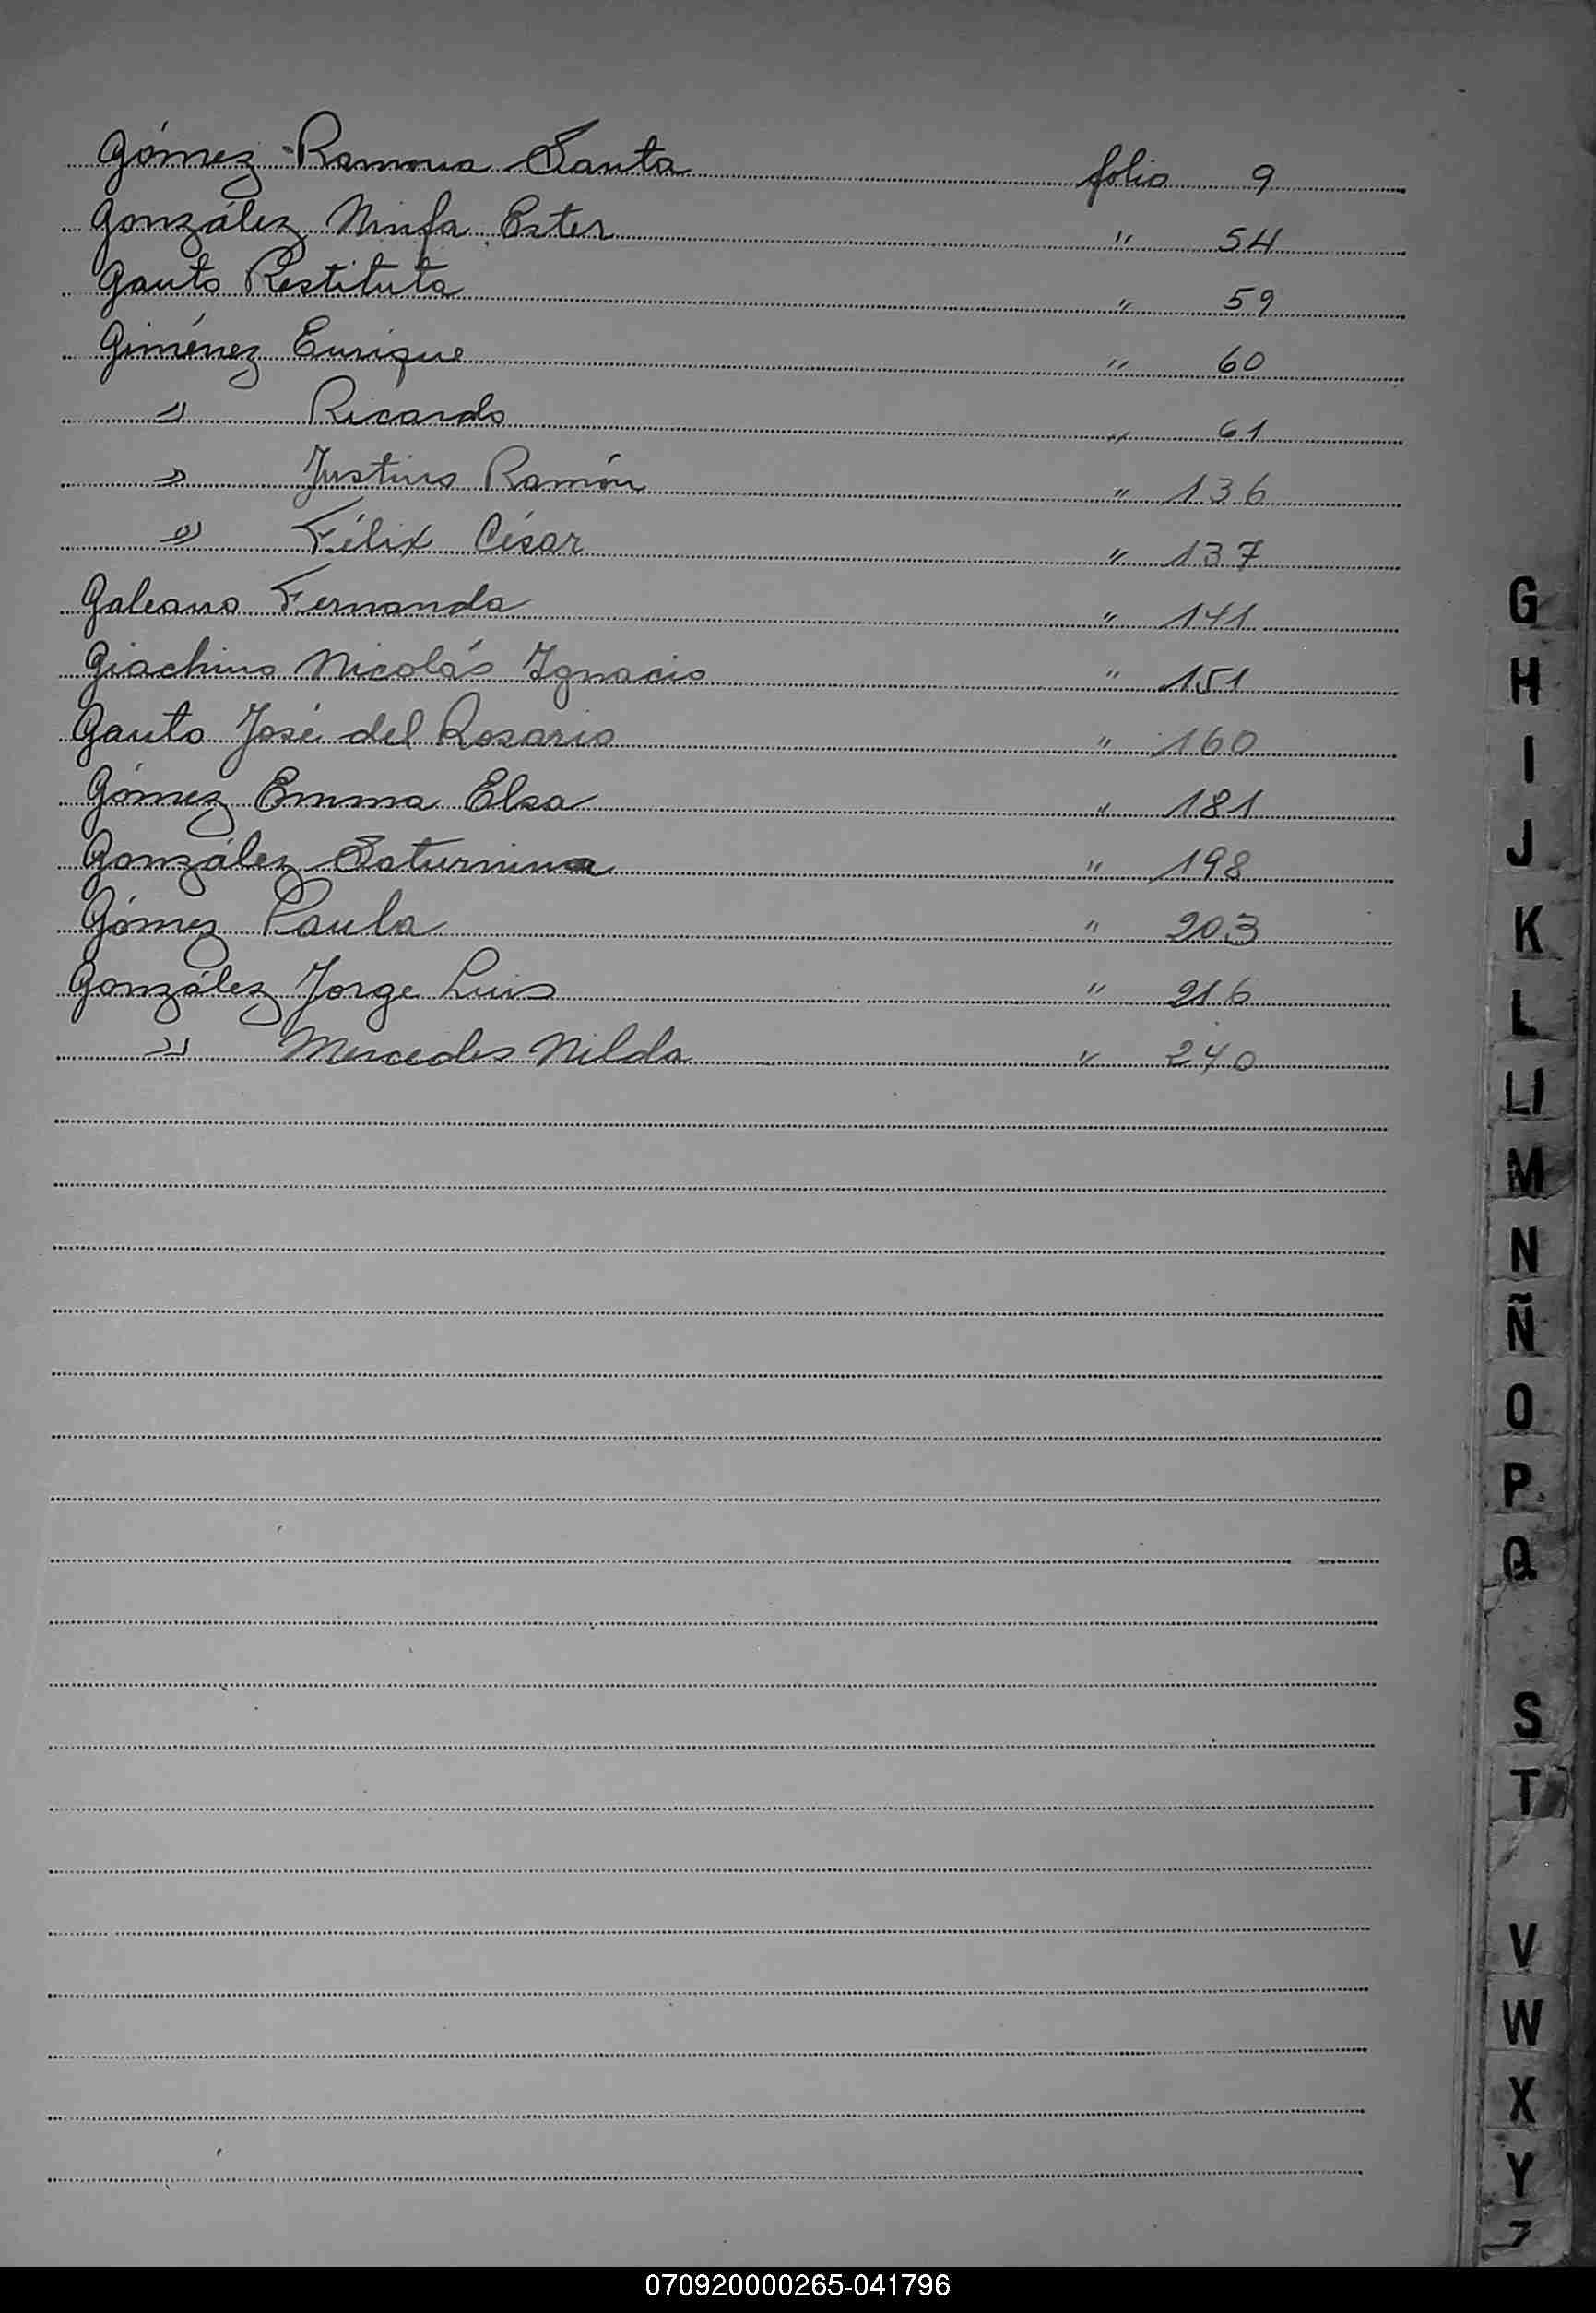 Gómez Ramona Santa folio 9
González Ninfa Ester " 54
Gauto Restituta " 59
Giménez Enrique " 60
" Ricardo " 61
" Justino Ramón " 136
" Félix César " 137
Galeano Fernanda " 141
Giachino Nicolás Ignacio " 151
Gauto José del Rosario " 160
Gómez Emma Elsa " 181
González Saturnina " 198
Gómez Paula " 203
González Jorge Luis " 216
" Mercedes Nilda " 240
G
H
I
J
K
L
Ll
M
N
Ñ
O
P
Q
S
T
V
W
X
Y
Z
070920000265-041796